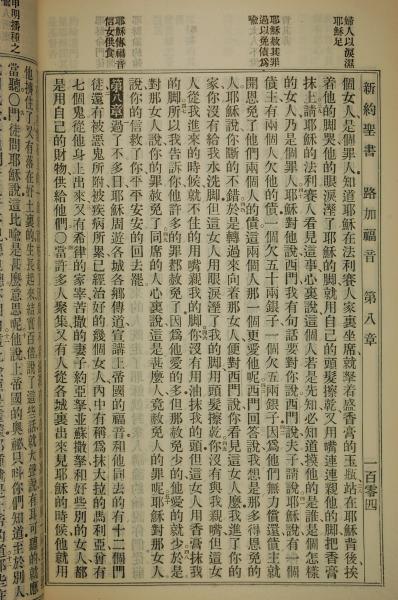 新約聖書 路加福音 第八章 一百零四
婦人以淚濕
耶穌足
耶穌赦其罪
過以免債為
耶穌傳福音
信女供食
申明播種之
個女人、是個罪人、知道耶穌在法利賽人家裏坐席就拏着盛香膏的玉瓶站在耶穌背後挨
着他的脚哭他的眼淚溼了耶穌的脚就用自己的頭髮擦乾又用嘴連連親他的脚把香膏
抹上請耶穌的法利賽人看見這事心裏說這個人若是先知必知道摸他的是誰是個怎樣
的女人乃是個罪人耶穌對他說西門我有句話要對你說西門說夫子請說耶穌說有一個
債主有兩個人欠他的債一個欠五十兩銀子一個欠五兩銀子因為他們無力償還債主就
開恩免了他們兩個人的債這兩個人那一個更愛他呢西門回答說我想是那多得恩免的
人耶穌說你斷的不錯於是轉過來向着那女人便對西門說你看見這女人麼我進了你的
家你沒有給我水洗脚但這女人用眼淚溼了我的脚用頭髮擦乾你沒有與我親嘴但這女
人從我進來的時候就不住的用嘴親我的脚你沒有用油抹我的頭但這女人用香膏抹我
的脚所以我告訴你他許多的罪都赦免了因為他愛的多但那赦免少的他愛的就少於是
對那女人說你的罪赦免了同席的人心裏說這是甚麼人竟赦免人的罪呢耶穌對那女人
說你的信救了你平平安安的回去罷
第八章過了不多日耶穌周遊各城各鄉傳道宣講上帝國的福音和他同去的有十二個門
徒還有被惡鬼所附被疾病所累已經治好的幾個女人內中有稱為抹大拉的馬利亞曾有
七個鬼從他身上出來又有希律的家宰苦撒的妻子約亞拏並蘇撒拏和好些別的女人都
是用自己的財物供給他們〇當許多人聚集又有人從各城裏出來見耶穌的時候他就用
他擠住了又有落在好土裏的生長起來結實百倍說了這些話就大聲說有耳可聽的就應
當聽〇門徒問耶穌說這比喻是甚麼意思呢他說上帝國的奧祕只呌你們知道至於別人